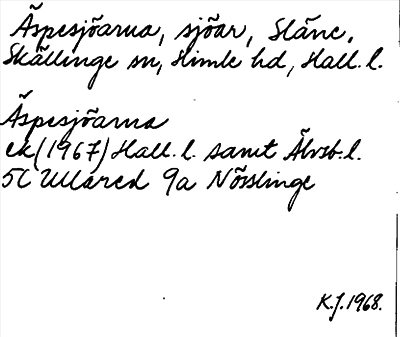 Äspesjöarna, sjöar, Släne,
Skällinge sn, Himle hd, Hall. l.
Äspesjöarna
ek (1967) Hall. l. samt Älvsb. l.
5C Ullared 9a Nösslinge
K.J. 1968.